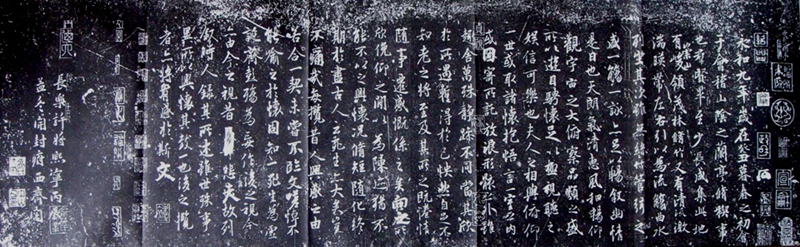 永和九年歲在癸丑暮春之初會
于會稽山陰之蘭亭脩稧事
也群賢畢至少長咸集此地
有峻領茂林脩竹又有清流激
湍映帶左右引以為流觴曲水
列坐其次雖無絲竹管弦之
盛一觴一詠亦足以暢敘幽情
是日也天朗氣清惠風和暢仰
觀宇宙之大俯察品類之盛
所以遊目騁懷足以極視聽之
娛信可樂也夫人之相與俯仰
一世或取諸懷抱悟言一室之內
或因寄所託放浪形骸之外雖
趣舍萬殊靜躁不同當其欣
於所遇暫得於己快然自足不
知老之將至及其所之既惓情
隨事遷感慨係之矣向之所
欣俛仰之閒以為陳迹猶不
能不以之興懷況脩短隨化終
期於盡古人云死生亦大矣豈
不痛哉每攬昔人興感之由
若合一契未嘗不臨文嗟悼不
能喻之於懷固知一死生為虛
誕齊彭殤為妄作後之視今
亦由今之視昔悲夫故列
敘時人錄其所述雖世殊事
異所以興懷其致一也後之攬
者亦將有感於斯文
長樂許將熙寧丙辰
孟冬開封府西齋閱